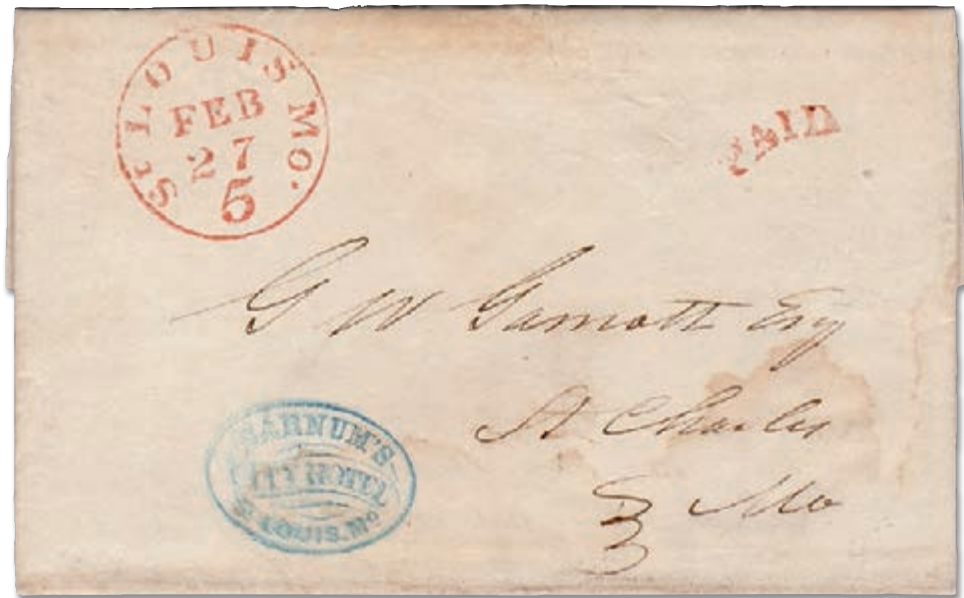 St LOUIS Mo.
FEB
27
5
PAID
G W Gamott Esq
St Charles
Mo
BARNUM'S
CITY HOTEL
St LOUIS. Mo